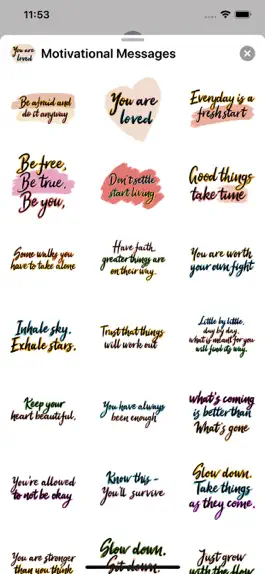 11:53
You are
loved
Motivational Messages
Be afraid and
do it anyway
You are
loved
Everyday is a
fresh start
Be free,
Be true,
Be you,
Don't settle
start living
Good things
take time
Some walks you
have to take alone
Have faith,
greater things are
on their way.
You are worth
your own fight
Inhale sky.
Exhale stars.
Trust that things
will work out
Little by little,
day by day,
what is meant for you
will find its way.
Keep your
heart beautiful.
You have always
been enough
What's coming
is better than
What's gone
You're allowed
to not be okay
Know this -
You'll survive
Slow down.
Take things
as they come.
You are stronger
than you think
Slow down.
Sit down.
Just grow
with the flow